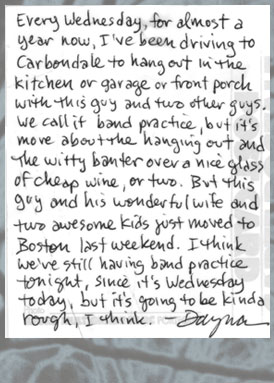 Every Wednesday, for almost a
year now, I've been driving to
Carbondale to hang out in the
kitchen or garage or front porch
with this guy and two other guys.
We call it band practice, but it's
more about the hanging out and
the witty banter over a nice glass
of cheap wine, or two. But this
guy and his wonderful wife and
two awesome kids just moved to
Boston last weekend. I think
we're still having band practice
tonight, since it's Wednesday
today, but it's going to be kinda
rough, I think. - Dayna